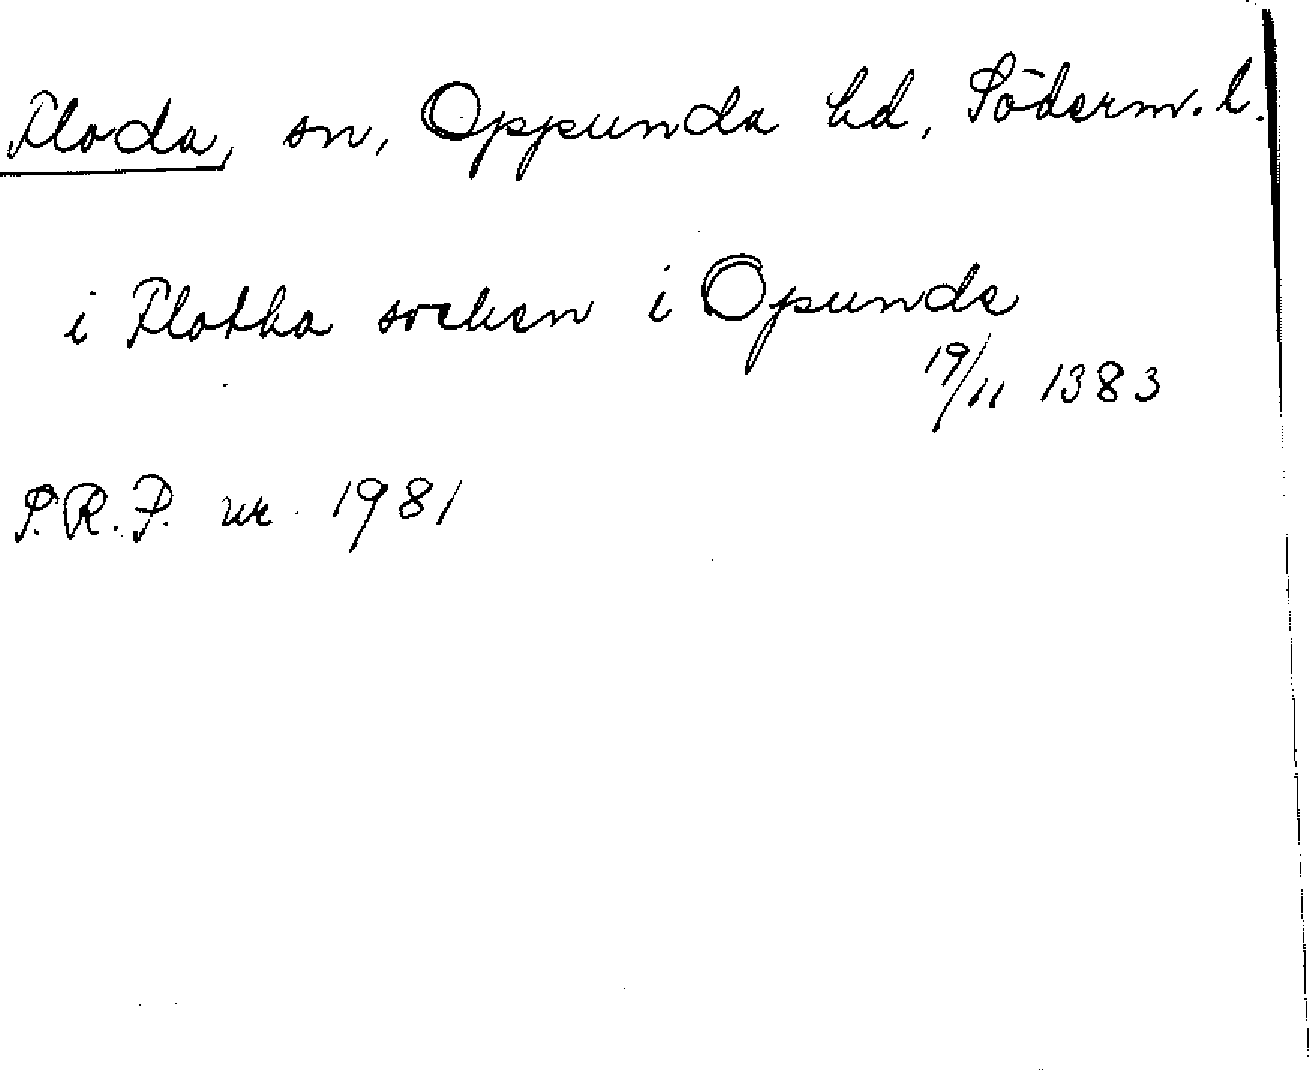 Floda, sn, Oppunda hd, Söderm. l.
i Flotha socken i Opunde
19/11 1383
S.R.P. nr. 1981